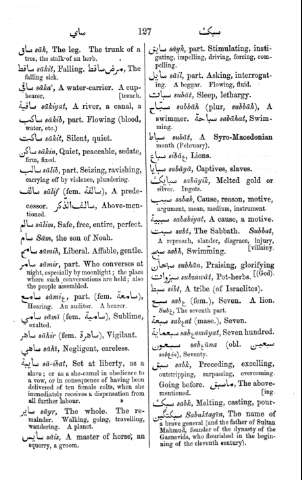 ساي
127
سبکت
ساق sāḳ, The leg. The trunk of a
tree, the stalk of an herb.
ساقط sāḳit, Falling. مرض ساقط, The
falling sick.
سقا saḳa', A water-carrier. A cup-
bearer, [reach,
ساقية sāḳiyat, A river, a canal, a
ساکب sākib, part. Flowing (blood,
water, etc.)
ساکت sākit, Silent, quiet.
ساکن sākin, Quiet, peaceable, sedate,
firm, fixed.
سالب sālib, part. Seizing, ravishing,
carrying off by violence, plundering.
سالف sālif (fem. سالفة), A prede-
cessor. سالف الذکر, Above-men-
tioned.
سالم sālim, Safe, free, entire, perfect.
سام Sām, the son of Noah.
سامح sāmiḥ, Liberal. Affable, gentle.
سامر sāmir, part. Who converses at
night, especially by moonlight; the place
where such conversations are held; also
the people assembled.
سامع sāmiع, part. (fem. سامعة),
Hearing. An auditor. A hearer.
سامي sāmī (fem. سامية), Sublime,
exalted.
ساهر sāhir (fem. ساهرة), Vigilant.
ساهي sāhī, Negligent, careless.
Set at liberty, as a
slave; or as a she-camel in obedience to
a vow, or in consequence of having been
delivered of ten female colts, when she
immediately receives a dispensation from
all further labour.
ساير sāyr, The whole. The re-
mainder. Walking, going, travelling,
wandering. A planet.
سايس sāis, A master of horse, an
squerry, a groom.
سايق sāyḳ, part. Stimulating, insti-
gating, impelling, driving, forcing, com-
pelling.
سايل sāil, part. Asking, interrogat-
ing. A beggar. Flowing, fluid.
سبات subāt, Sleep, lethargy.
سباح sabbāḥ (plur. subbāḥ), A
swimmer. سباحة sabāhat, Swim-
ming.
سباط subāt, A Syro-Macedonian
month (February).
سباع sibāع, Lions.
سبايا sabāyā, Captives, slaves.
سبايك sabāyik, Melted gold or
silver. Ingots.
سبب sabab, Cause, reason, motive,
argument, mean, medium, instrument.
سببية sababiyat, A cause, a motive.
سبت sabt, The Sabbath. Subbat,
A reproach, slander, disgrace, injury,
سبح sabḥ, Swimming. [villainy.
سبحان subḥān, Praising, glorifying
Pot-herbs. [(God).
سبط sibt, A tribe (of Israelites).
سبع sabع (fem.), Seven. A lion.
Subع, The seventh part.
سبعة sabعat (masc.), Seven.
سبعماية Seven hundred.
سبعون sabعūna (obl. سبعين
sabعīn), Seventy.
سبق sabḳ, Preceding, excelling,
outstripping, surpassing, overcoming.
Going before. ما سبق, The above-
mentioned. [ing
سبك sabk, Melting, casting, pour-
سبکتکین Sabaktagīn, The name of
a brave general (and the father of Sultan
Mahmoud, founder of the dynasty of the
Gasnevids, who flourished in the begin-
ning of the eleventh century).